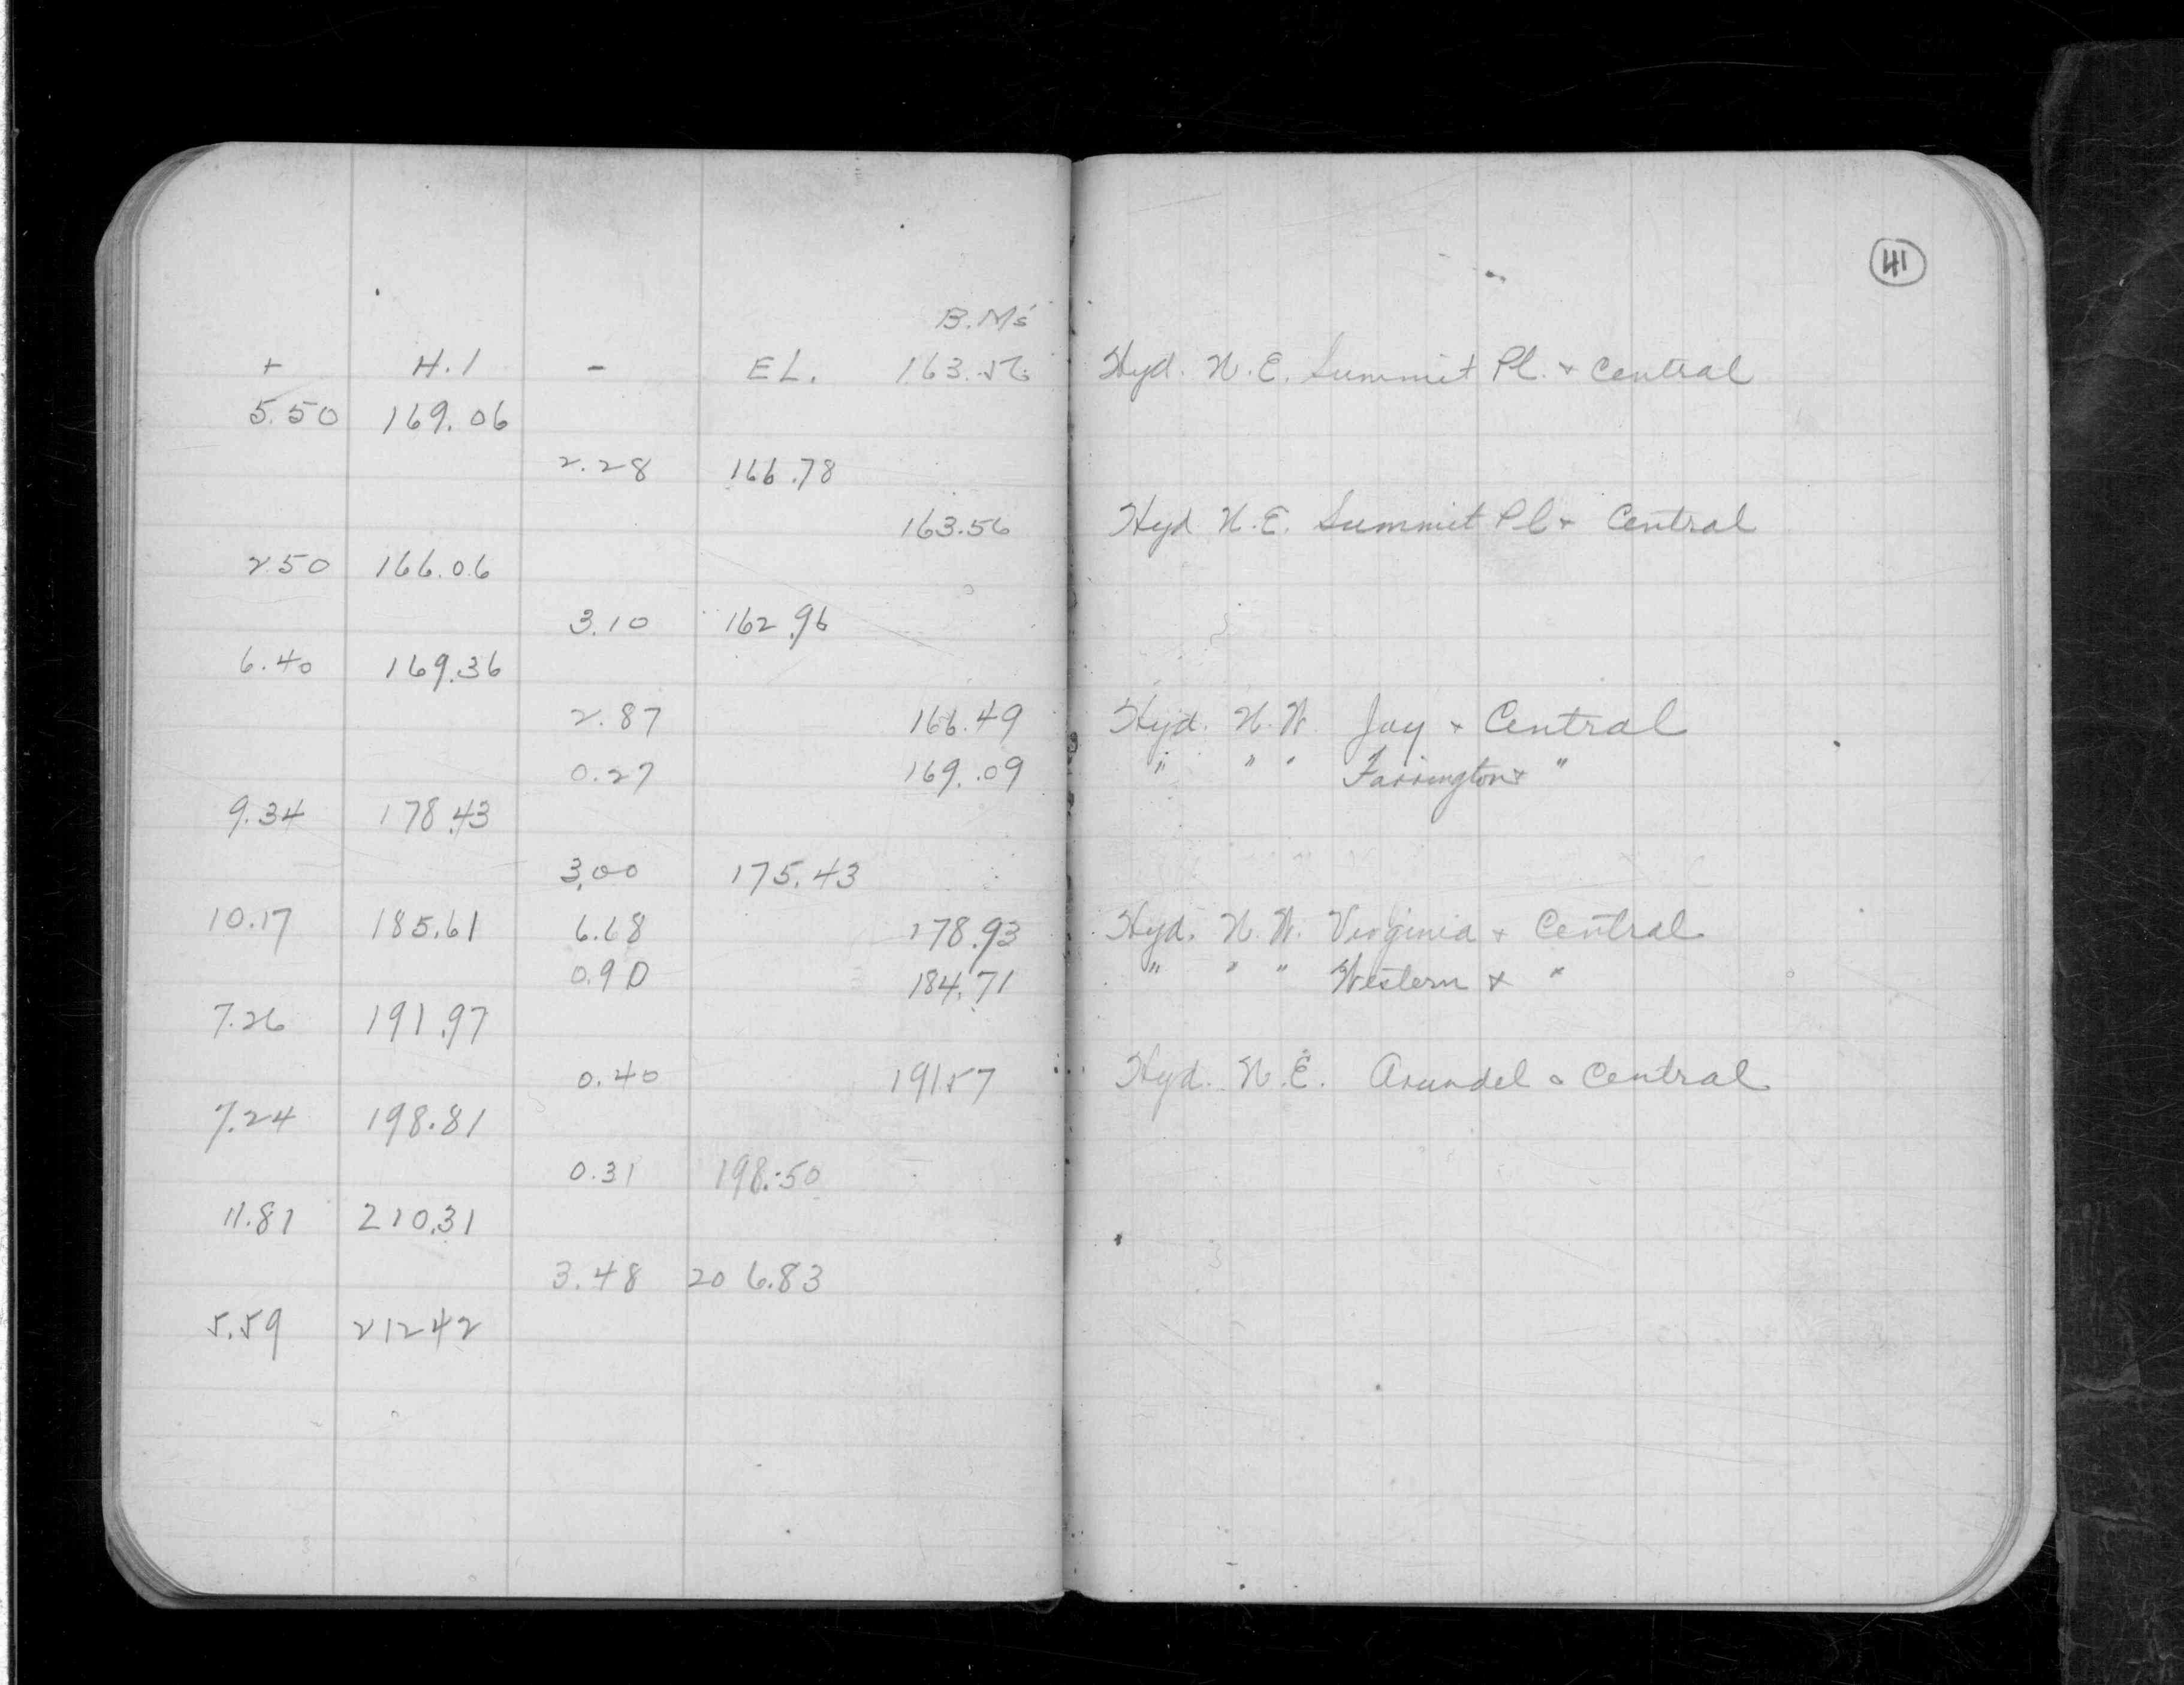 41
B.M's
+ H.I - EL. 163.56 Hyd. N.E. Summit Pl. & Central
5.50 169.06
2.28 166.78
163.56 Hyd N.E. Summit Pl & Central
2.50 166.06
3.10 162.96
6.40 169.36
2.87 166.49 Hyd. N.W. Jay & Central
0.27 169.09 " " " Farrington & "
9.34 178.43
3.00 175.43
10.17 185.61 6.68 178.93 Hyd. N.W. Virginia & Central
0.90 184.71 " " " Western & "
7.26 191.97
0.40 191.57 Hyd. N.E. Arundel & Central
7.24 198.81
0.31 198.50
11.81 210.31
3.48 206.83
5.59 212 42